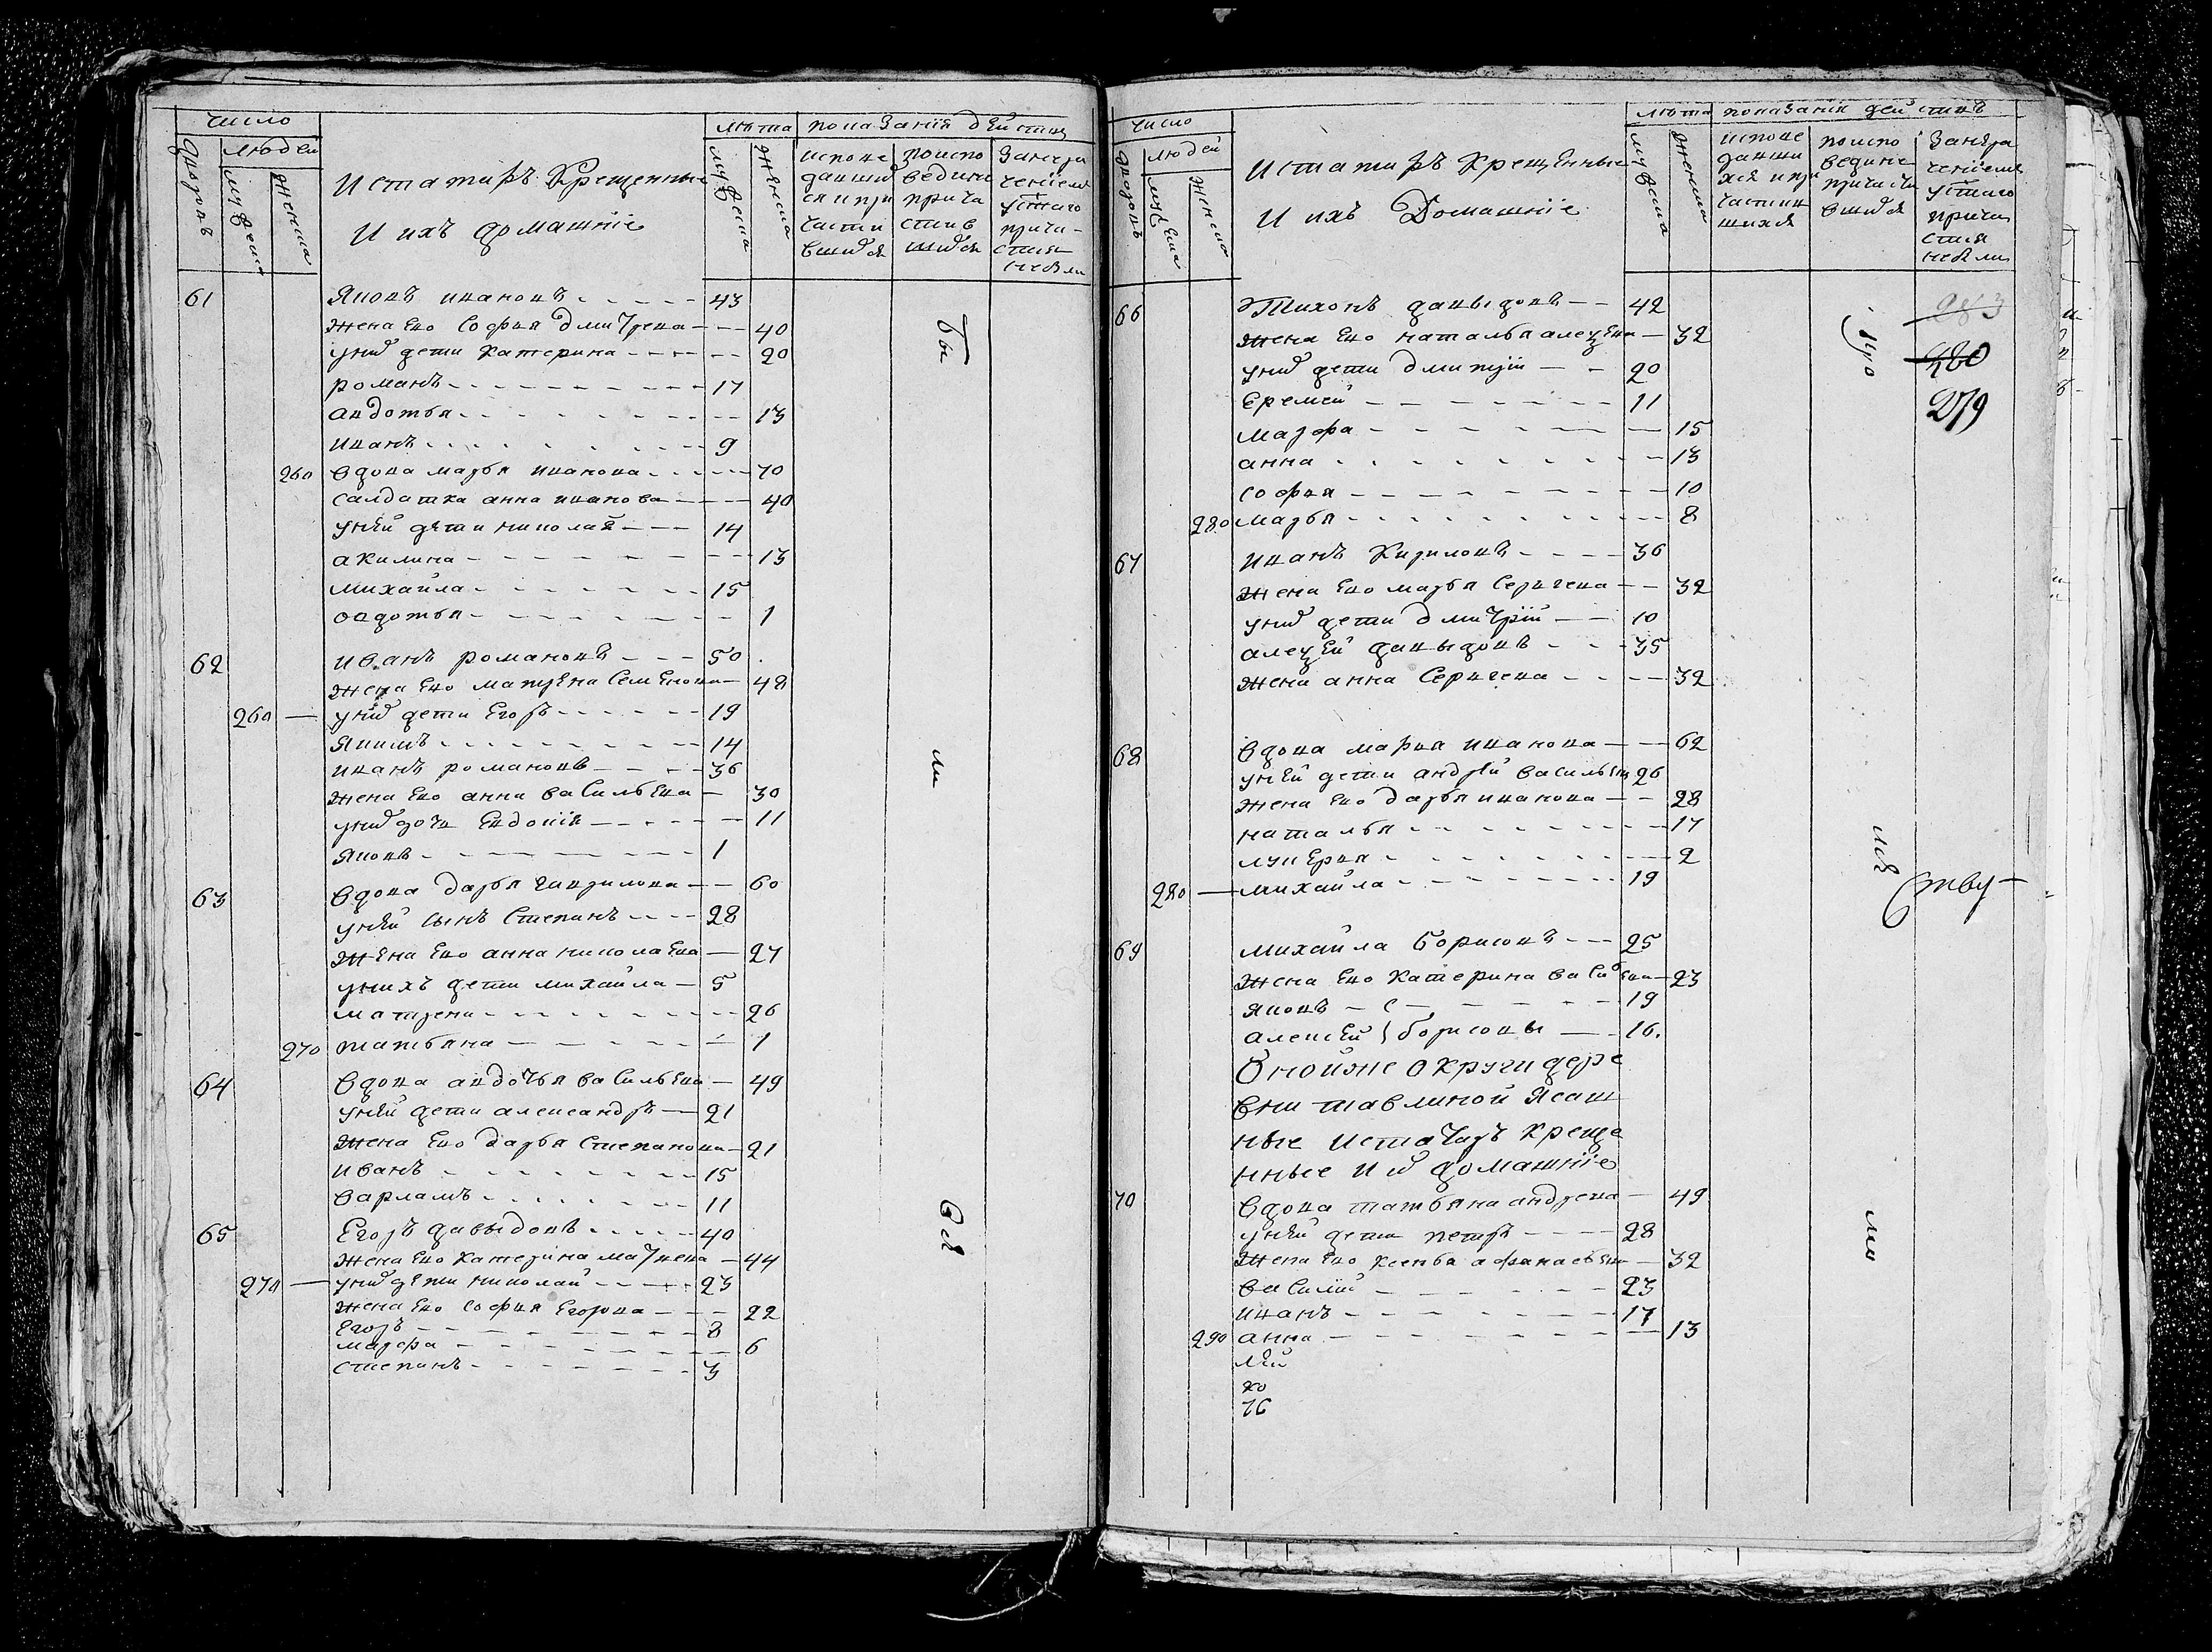 Число
людей
дворовъ
мужеска
женска
Истатаръ Крещенные
И ихъ домашніе
лѣта
показанія дѣйствъ
мужеска
женска
испове
давши
ся и при
части
вшихся
по испо
веди не
прича
стив
шихся
занера
ченіем
у с͠таго
прича-
стия
не были
61
Яковъ ивановъ 43
жена Ево Софья дмитрева 40
у них дети Катерина 20
романъ 17
авдотья 13
иванъ 9
260 вдова марья иванова 70
салдатка анна иванова 40
у ней дети николай 14
акилина 13
михайла 15
овдотья 1
62
иванъ романовъ 50
жена Ево матрена Семенова 48
260 — у них дети Егоръ 19
Якимъ 14
иванъ романовъ 36
жена Ево анна васильева 30
у них дочь Евдокія 11
Яковъ 1
63
вдова дарья гаврилова 60
у ней сынъ Степанъ 28
жена Ево анна николаева 27
у нихъ дети михайла 5
матрена 26
270 татьяна 1
64
вдова авдотья васильева 49
у ней дети александръ 21
жена Ево дарья Степанова 21
иванъ 15
варламъ 11
65
Егоръ давыдовъ 40
жена Ево Катерина матвева 44
270 — у них дети николай 23
жена Ево софья Егорова 22
Егоръ 8
марфа 6
степанъ 3
бы
ли
вся
Число
людей
дворовъ
мужеска
женска
Истатаръ Крещенные
И ихъ Домашніе
лѣта
показанія дѣйствъ
мужеска
женска
испове
давши
хся и при
частив
шихся
по испо
веди не
причасти
вшихся
занера
ченіем
у с͠таго
прича
стия
не были
66
Тихонъ давыдовъ 42
жена Ево наталья алеѯева 32
у них дети дмитрій 20
Еремей 11
марфа 15
анна 13
софья 10
280 марья 8
67
иванъ Кириловъ 36
жена Ево марья Сергеева 32
у них дети дмитрій 10
алеѯей давыдовъ 35
жена анна Сергеева 32
68
вдова марья иванова 62
у ней дети андрей васильев 26
жена Ево дарья иванова 28
наталья 17
лукерья 2
280 — михайла 19
69
михайла борисовъ 25
жена Ево катерина васильева 23
яковъ 19
алексей } борисовы 16.
Оной же округи дере
вни тавлиной Ясаш
ные истатаръ креще
нные и их домашніе
70
вдова татьяна андреева 49
у ней дети петръ 28
жена Ево ксенья афанасьева 32
василій 23
иванъ 17
290 анна 13
лей
хо
283
280
279
ству-
ли